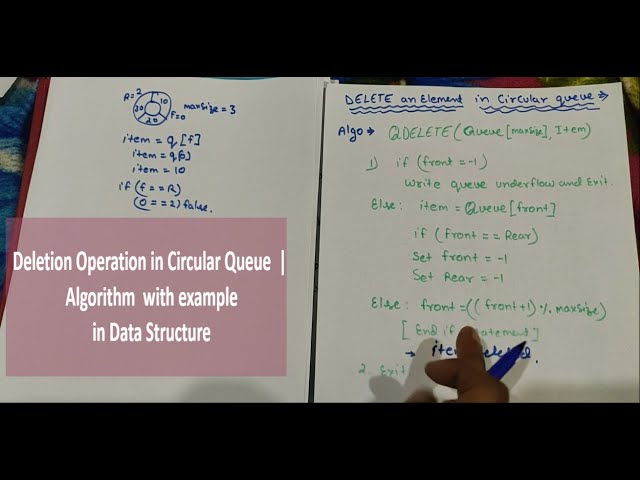 R=2
10
30
20
F=0
maxsize = 3
item = q[f]
item = q[0]
item = 10
if (f == R)
(0 == 2) false.
Deletion Operation in Circular Queue |
Algorithm with example
in Data Structure
DELETE an Element in Circular queue ⇒
Algo → QDELETE (Queue[maxsize], Item)
1) if (front = -1)
Write queue underflow and Exit.
Else: item = Queue[front]
if (front == Rear)
Set front = -1
Set Rear = -1
Else: front = ((front+1) % maxsize)
[ End if statement ]
→ item deleted.
2. Exit